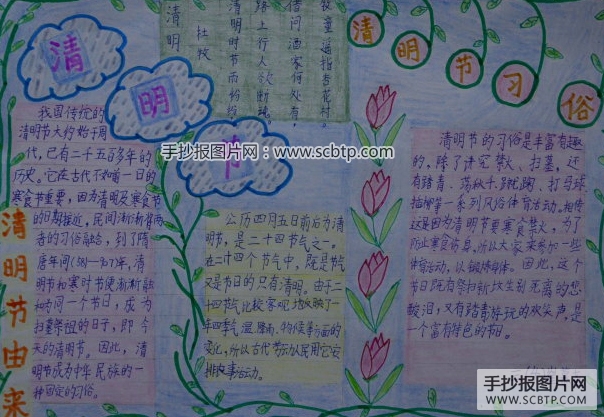 清明节
清明
杜牧
清明时节雨纷纷
路上行人欲断魂。
借问酒家何处有，
牧童遥指杏花村。
清明节习俗
手抄报图片网：www.scbtp.com
清明节由来
我国传统的
清明节大约始于周
代，已有二千五百多年的
历史。它在古代不如前一日的
寒食节重要，因为清明及寒食节
的日期接近，民间渐渐将两
者的习俗融合，到了隋
唐年间(581-907)年，清
明节和寒时节便渐渐融
和为同一个节日，成为
扫墓祭祖的日子，即今
天的清明节。因此，清
明节成为中华民族的一
种固定的习俗。
公历四月五日前后为清
明节，是二十四节气之一。
在二十四个节气中，既是节气
又是节日的只有清明。由于二
十四节气比较客观地反映了一
年四季气温、雨、物候等方面的
变化，所以古代劳动人民用它安
排农事活动。
清明节的习俗是丰富有趣
的，除了讲究禁火、扫墓，还
有踏青、荡秋千、蹴鞠、打马球、
插柳等一系列风俗体育活动。相传
这是因为清明节要寒食禁火，为了
防止寒食伤身，所以大家来参加一些
体育活动，以锻炼身体。因此，这个
节日既有祭扫新坟生别死离的悲
酸泪，又有踏青游玩的欢笑声，是
一个富有特色的节日。
手抄报图片网
WWW.SCBTP.COM